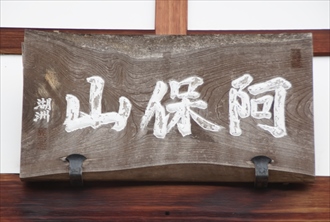 阿保山
湖洲